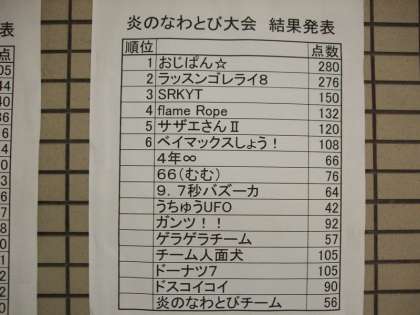 表
点
05
44
40
36
6
4
0
3
6
7
8
0
1
2
0
炎のなわとび大会 結果発表
順位 点数
1 おじぱん☆ 280
2 ラッスンゴレライ8 276
3 SRKYT 150
4 flame Rope 132
5 サザエさんⅡ 120
6 ベイマックスしょう! 108
4年∞ 66
66(むむ) 76
9.7秒バズーカ 64
うちゅうUFO 42
ガンツ!! 92
ゲラゲラチーム 57
チーム人面犬 105
ドーナツ7 105
ドスコイコイ 90
炎のなわとびチーム 56